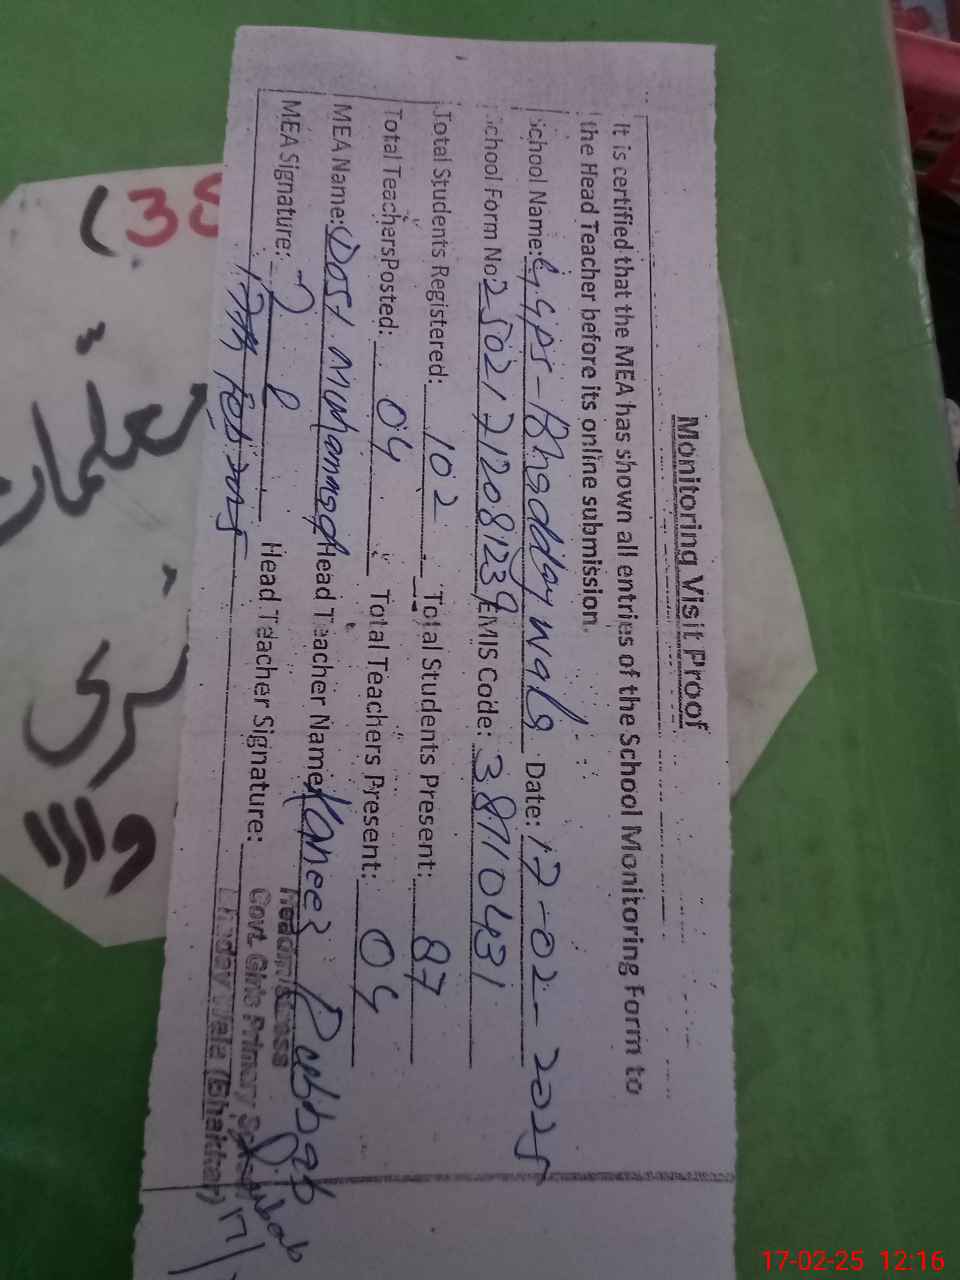 Monitoring Visit Proof
It is certified that the MEA has shown all entries of the School Monitoring Form to
the Head Teacher before its online submission.
School Name: GGPS - Bhaddaywala Date: 17-02-2025
School Form No 2502171208123 EMIS Code: 38710431
Total Students Registered: 102 Total Students Present: 87
Total Teachers Posted: 04 Total Teachers Present: 04
MEA Name: Dost Muhammad Head Teacher Name: Kaneez Rubbab
MEA Signature: Head Teacher Signature:
17th Feb 2025
Headmistress
Govt. Girls Primary School
(Bhakkar)
(38
معلمات
والا
17-02-25 12:16